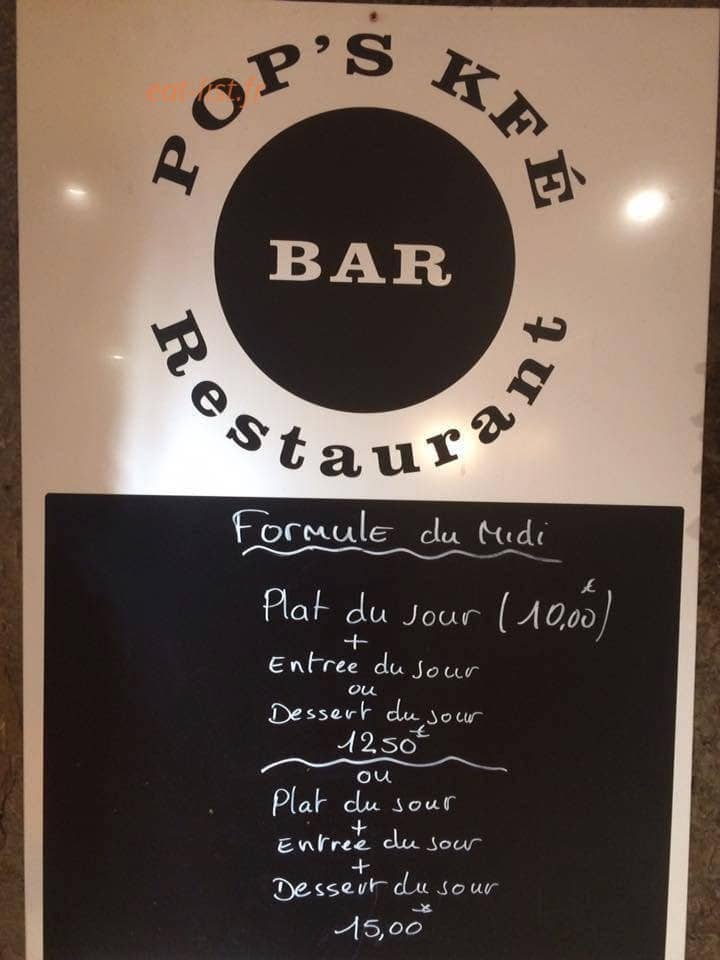 eat-list.fr
POP'S KFÉ
BAR
Restaurant
Formule du Midi
Plat du jour (10,00€)
+
Entree du jour
ou
Dessert du jour
12,50€
ou
Plat du jour
+
Entree du jour
+
Dessert du jour
15,00€